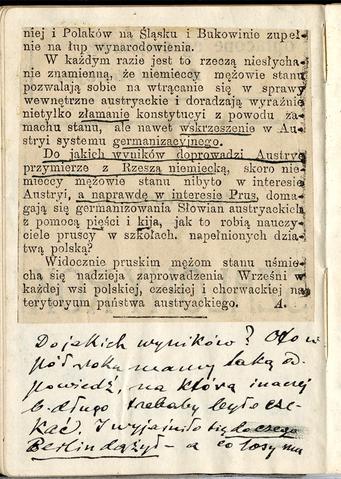 niej i Polaków na Śląsku i Bukowinie zupeł-
nie na łup wynarodowienia.
W każdym razie jest to rzeczą niesłycha-
nie znamienną, że niemieccy mężowie stanu
pozwalają sobie na wtrącanie się w sprawy
wewnętrzne austryackie i doradzają wyraźnie
nietylko złamanie konstytucyi z powodu za-
machu stanu, ale nawet wskrzeszenie w Au-
stryi systemu germanizacyjnego.
Do jakich wyników doprowadzi Austryę
przymierze z Rzeszą niemiecką, skoro nie-
mieccy mężowie stanu nibyto w interesie
Austryi, a naprawdę w interesie Prus, doma-
gają się germanizowania Słowian austryackich
z pomocą pięści i kija, jak to robią nauczy-
ciele pruscy w szkołach, napełnionych dzia-
twą polską?
Widocznie pruskim mężom stanu uśmie-
cha się nadzieja zaprowadzenia Wrześni w
każdej wsi polskiej, czeskiej i chorwackiej na
terytoryum państwa austryackiego. A.
Do jakich wyników? Oto w
pół roku mamy taką od-
powiedź, na którą inaczej
b. długo trzebaby było cze-
kać. I wyjaśniło się do czego
Berlin dążył – a co losy mu